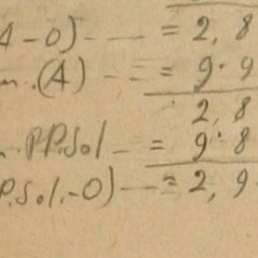 A-0) - — = 2, 8
n.(A) - - = 9.9
2, 8
n. P.P.Sol - = 9.8
P.Sol.-0) — = 2, 9